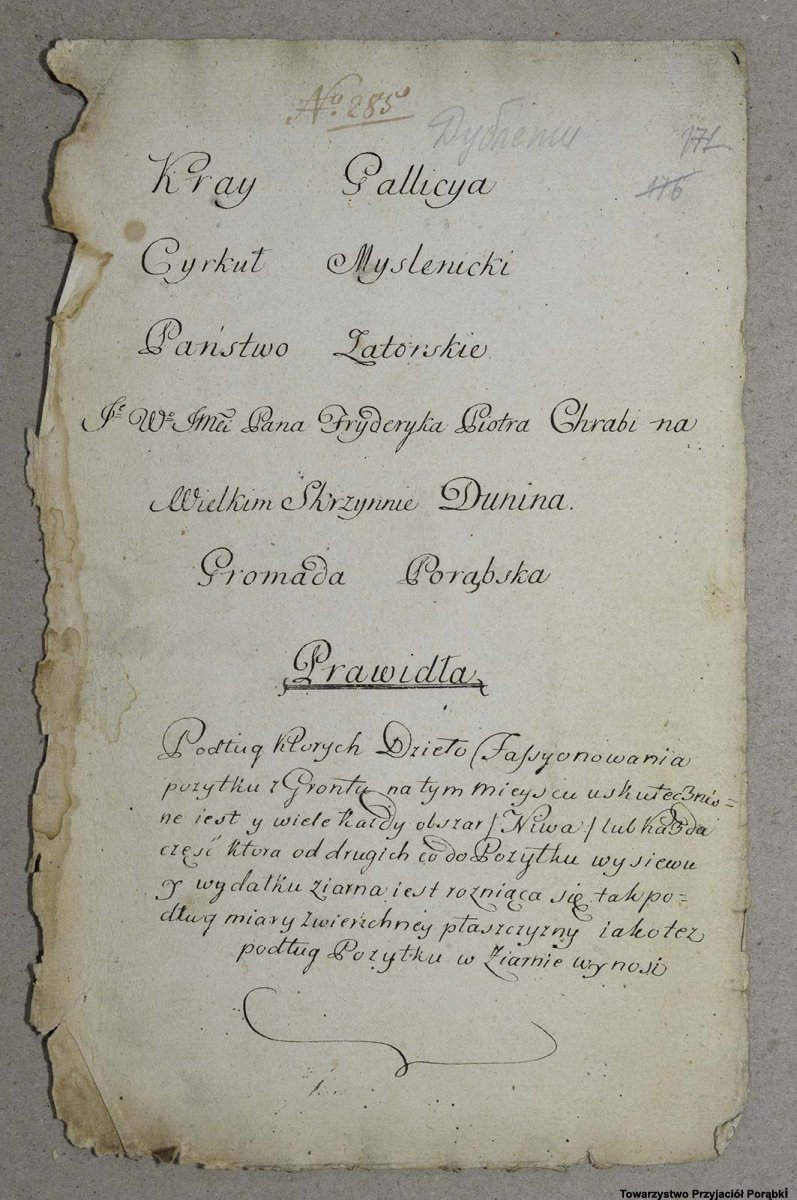 No. 285
171
176
Kray Gallicya
Cyrkuł Myslenicki
Państwo Zatorskie
Je We Jmci Pana Fryderyka Piotra Chrabi na
Wielkim Skrzynnie Dunina.
Gromada Porąbska
Prawidła
Podług ktorych Dzieło Fassyonowania
pozytku z Grontu na tym mieyscu uskutecznio=
ne iest y wiele każdy obszar / Niwa / lub kazda
część ktora od drugich co do Pozytku wysiewu
y wydatku ziarna iest rozniąca się tak po=
dług miary zwierzchney płaszczyzny iakotez
podług Pozytku w Ziarnie wynosi
Towarzystwo Przyjaciół Porąbki